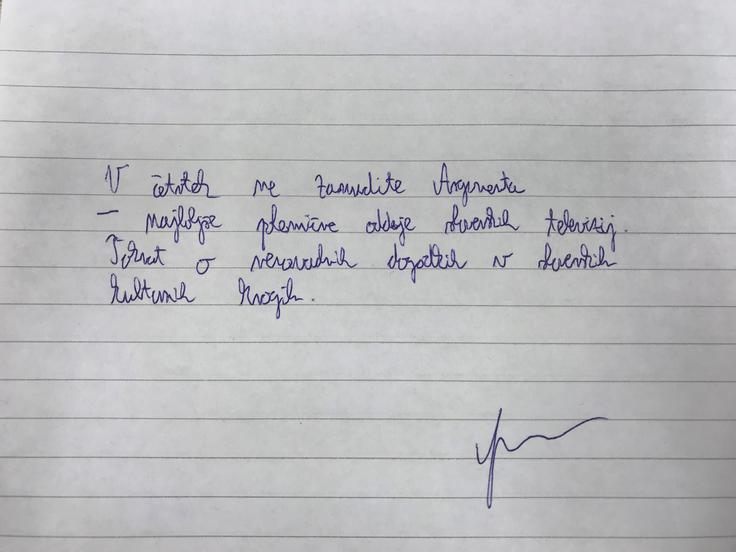 V četrtek ne zamudite Argumenta
– najboljše polemične oddaje slovenskih televizij.
Tokrat o nenavadnih dogodkih v slovenskih
kulturnih krogih.